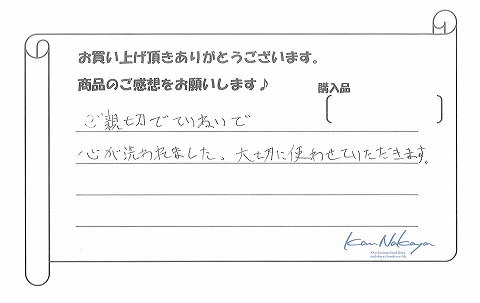 お買い上げ頂きありがとうございます。
商品のご感想をお願いします♪
購入品
ご親切でていねいで
心が洗われました。大切に使わせていただきます。
Kan Nakaya